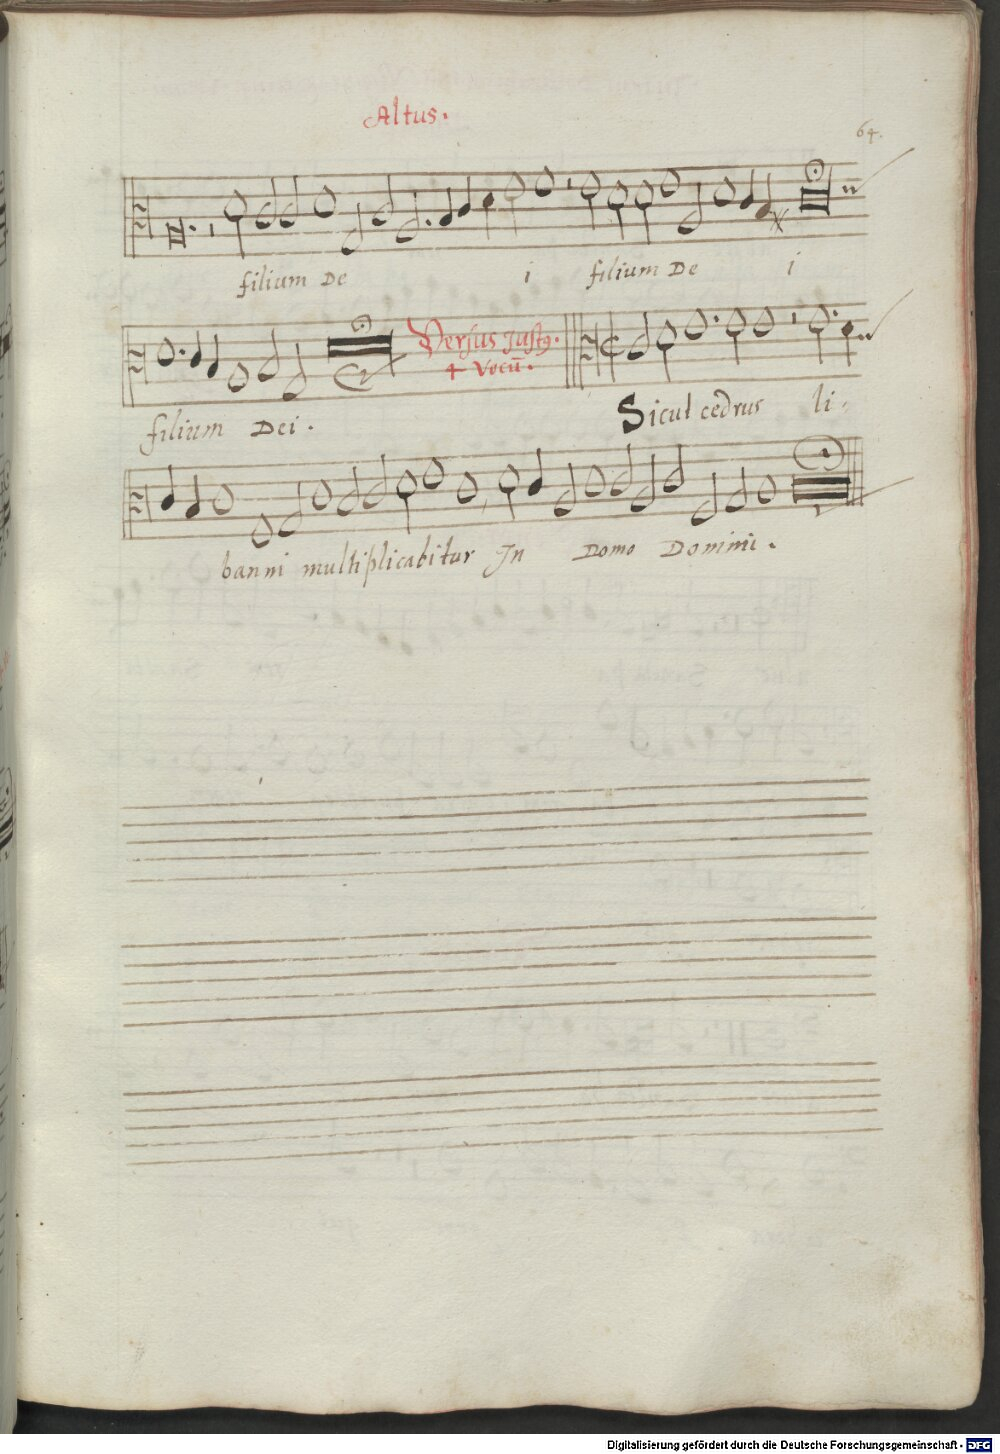 Altus.
64.
filium De i filium De i
Versus Justꝰ.
4 vocū.
filium Dei. Sicut cedrus li-
banni multiplicabitur In Domo Domini.
Digitalisierung gefördert durch die Deutsche Forschungsgemeinschaft - DFG